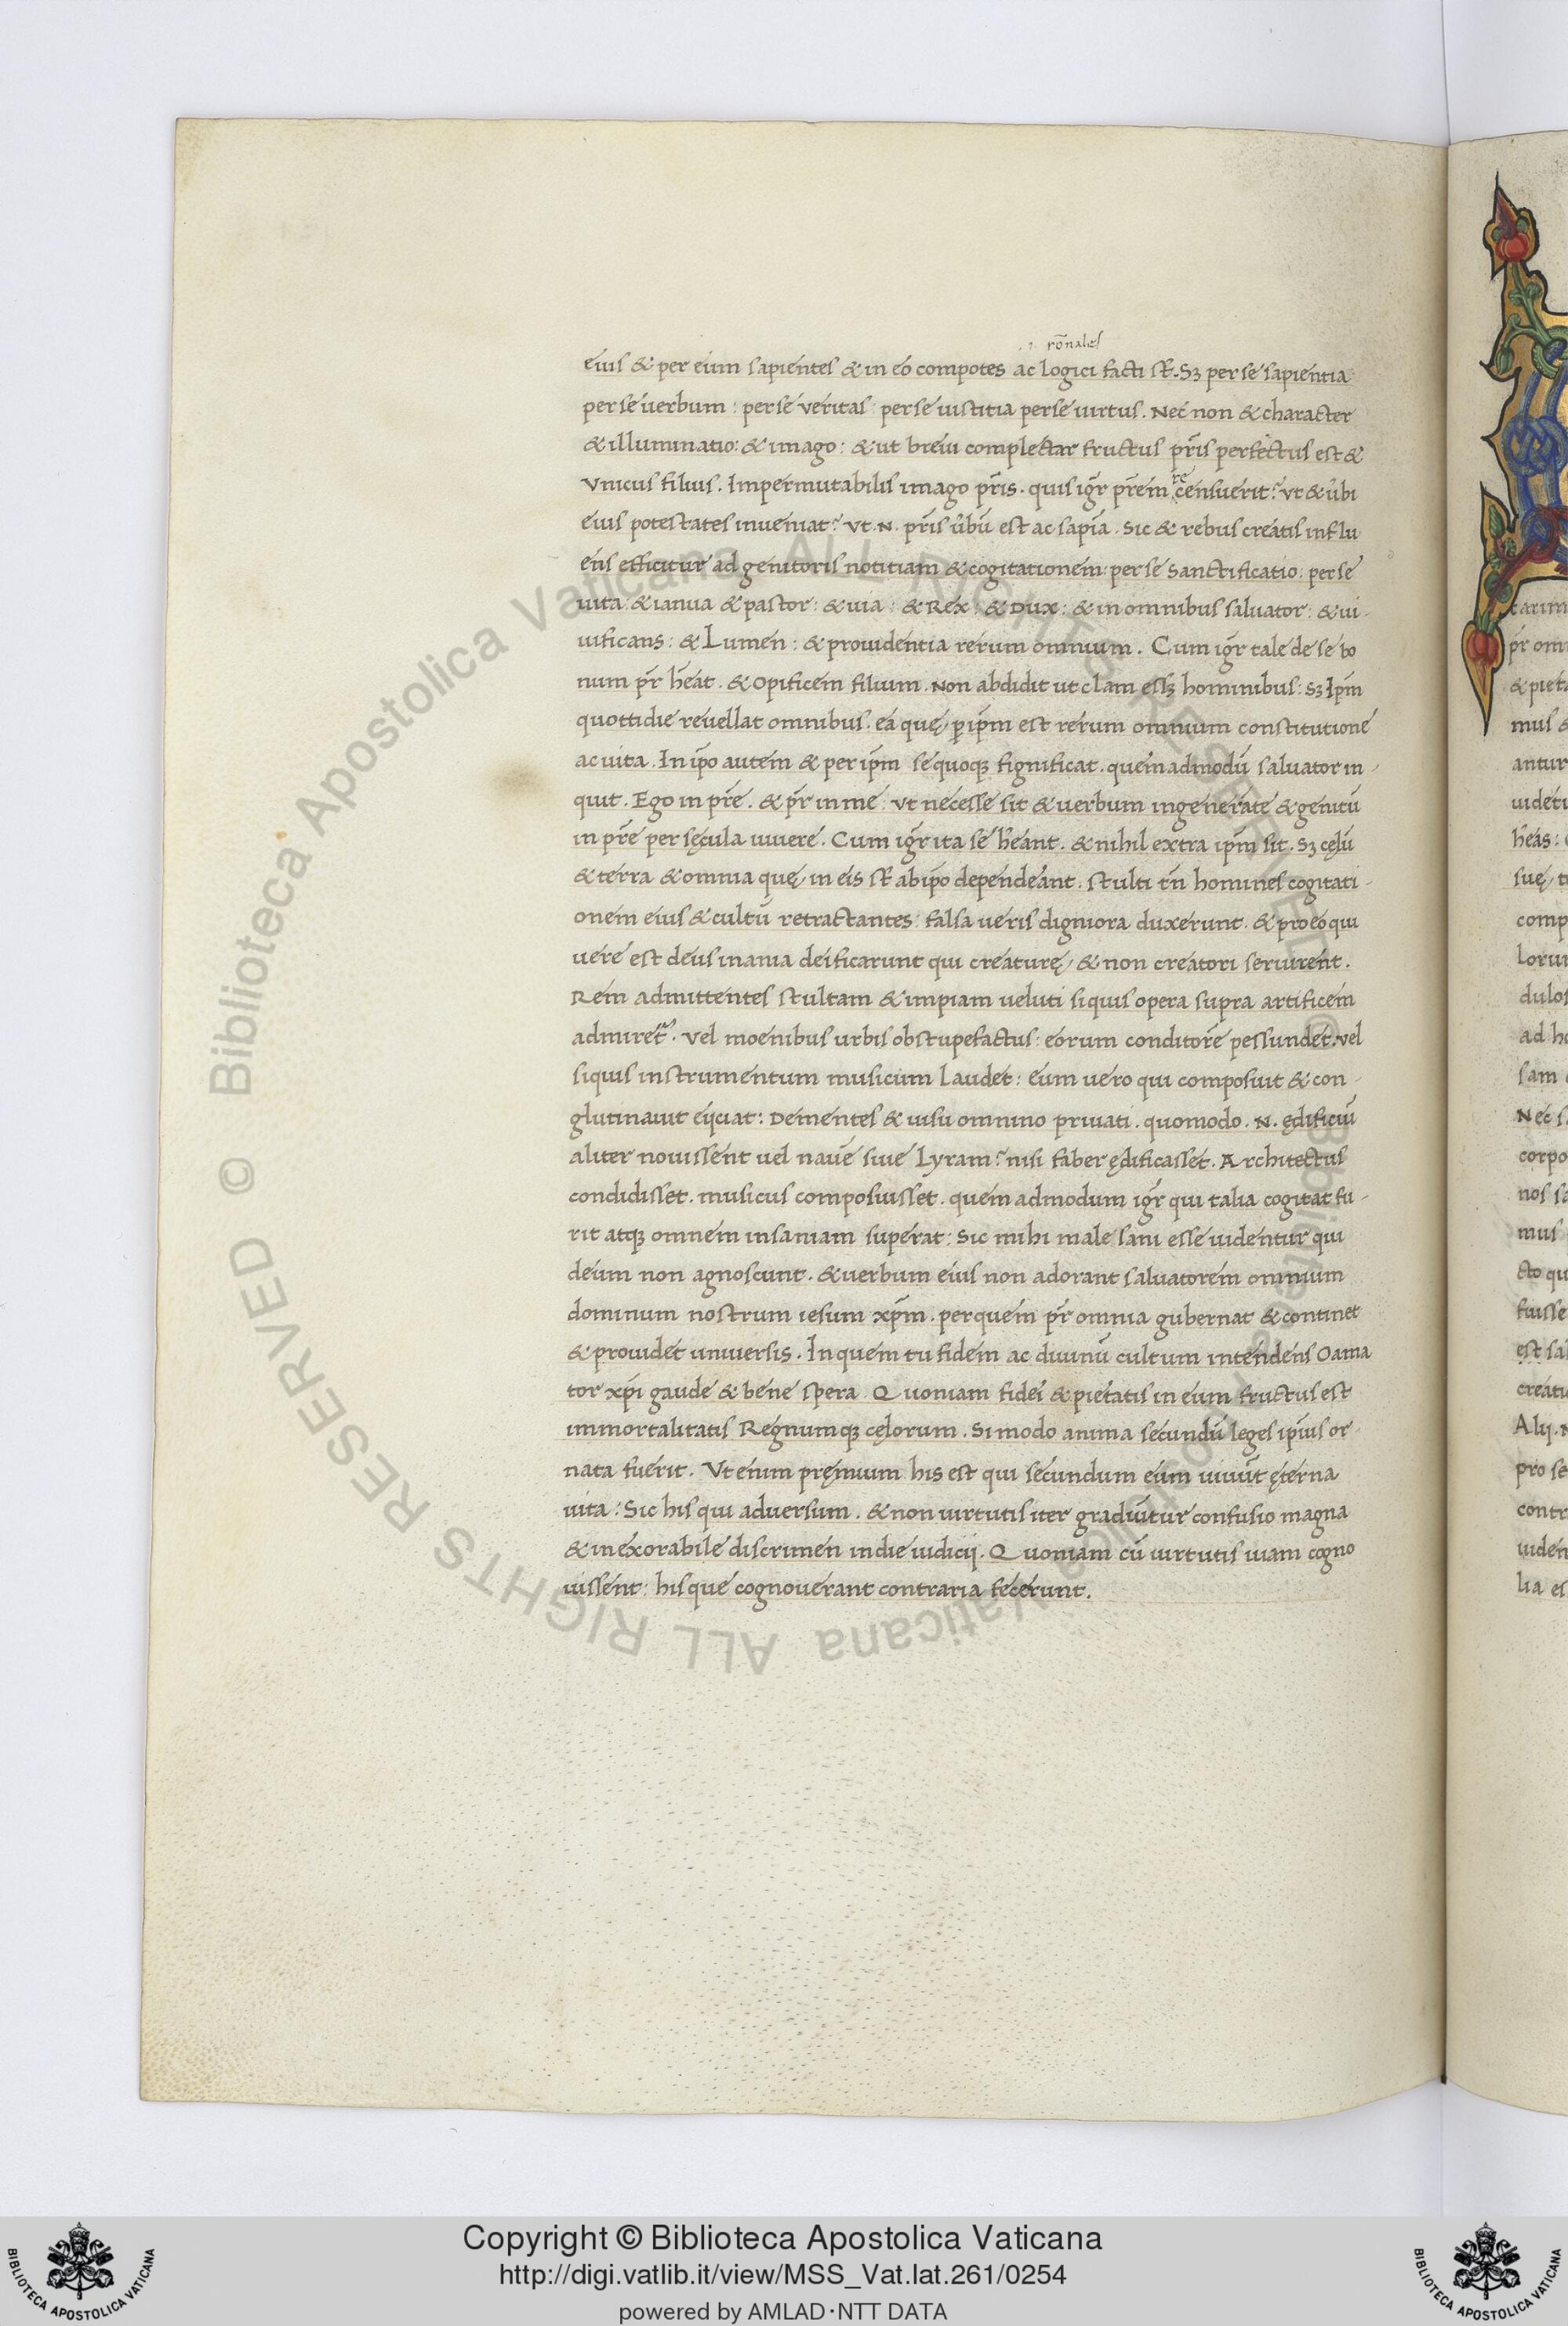 .i. rōnales
eius & per eum sapientes & in eo compotes ac logici facti st̄. Sꝫ per se sapientia
per se uerbum: per se veritas: per se iustitia per se uirtus. Nec non & character
& illuminatio: & imago: & ut breui complectar fructus pr̄is perfectus est &
vnicus filius. Impermutabilis imago pr̄is. quis igr̄ pr̄em recensuerit? vt & ūbi
eius potestates inueniat? vt .N. pr̄is ūbū est ac sapīa. Sic & rebus creatis influ
ens efficitur ad genitoris notitiam & cogitationem: per se sanctificatio: per se
uita: & ianua & pastor: & uia: & Rex: & Dux: & in omnibus saluator: & ui-
uificans: & Lumen: & prouidentia rerum omnium. Cum igr̄ tale de se bo
num pr̄ h̄eat. & Opificem filium. Non abdidit ut clam essꝫ hominibus: sꝫ Ip̄m
quottidie reuellat omnibus. ea quę ꝑ ip̄m est rerum omnium constitutione
ac uita. In ip̄o autem & per ip̄m se quoqꝫ significat. quemadmodū saluator in-
quit. Ego in pr̄e. & pr̄ in me: vt necesse sit & uerbum ingenerate & genitū
in pr̄e per sęcula uiuere. Cum igr̄ ita se h̄eant. & nihil extra ip̄m sit. Sꝫ cęlū
& terra & omnia quę in eis st̄ ab ip̄o dependeant. stulti tn̄ homines cogitati-
onem eius & cultū retractantes: falsa ueris digniora duxerunt. & pro eo qui
uere est deus inania deificarunt qui creaturę & non creatori seruirent.
Rem admittentes stultam & impiam ueluti siquis opera supra artificem
admiret᷑. vel moenibus urbis obstupefactus: eorum conditorē pessundet. vel
siquis instrumentum musicum laudet: eum uero qui composuit & con-
glutinauit eijciat: Dementes & uisu omnino priuati. quomodo .N. ędificiū
aliter nouissent uel nauē siue Lyram? nisi faber ędificasset. Architectus
condidisset. musicus composuisset. quemadmodum igr̄ qui talia cogitat fu-
rit atqꝫ omnem insaniam superat: Sic mihi male sani esse uidentur qui
deum non agnoscunt. & uerbum eius non adorant saluatorem omnium
dominum nostrum iesum xp̄m. per quem pr̄ omnia gubernat & continet
& prouidet uniuersis. In quem tu fidem ac diuinū cultum intendens O ama
tor xp̄i gaude & bene spera. Quoniam fidei & pietatis in eum fructus est
immortalitatis Regnumqꝫ cęlorum. Si modo anima secundū leges ip̄ius or-
nata fuerit. Vt enim pręmium his est qui secundum eum uiuūt ęterna
uita: Sic his qui aduersum. & non uirtutis iter gradiūtur confusio magna
& inexorabile discrimen in die iudicij. Quoniam cū uirtutis uiam cogno
uissent: his que cognouerant contraria fecerunt.
tarim
pr̄ om
& piet
mus &
antur
uidet
h̄eas:
suę t
comp
Lorum
dulos
ad h
sam
Nec s
corpo
nos s
mus
cto qu
fuisse
est sa
creatu
Alij. N
pro se
contr
uiden
lia es
© Biblioteca Apostolica Vaticana ALL RIGHTS RESERVED © Biblioteca Apostolica Vaticana ALL RIGHTS RESERVED
BIBLIOTECA APOSTOLICA VATICANA
Copyright © Biblioteca Apostolica Vaticana
http://digi.vatlib.it/view/MSS_Vat.lat.261/0254
powered by AMLAD·NTT DATA
BIBLIOTECA APOSTOLICA VATICANA